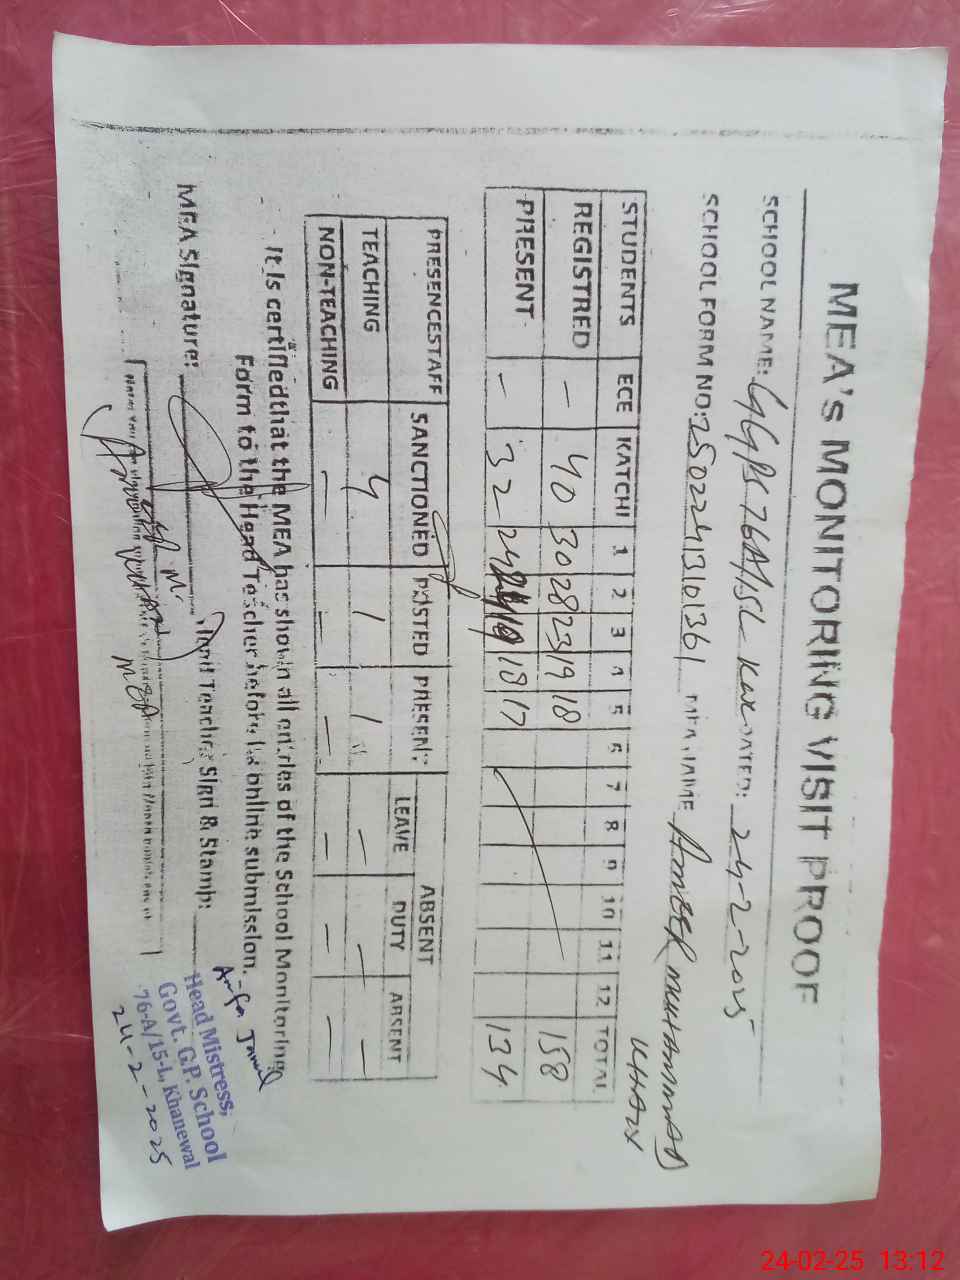 MEA's MONITORING VISIT PROOF
SCHOOL NAME: GGPS 76A/15L DATED: 24-2-2025
SCHOOL FORM NO: 250224130136 MEA NAME AMEER MUHAMMAD
STUDENTS ECE KATCHI 1 2 3 4 5 6 7 8 9 10 11 12 TOTAL
REGISTRED - 40 30 28 23 19 18 158
PRESENT - 32 18 17 134
PRESENCE STAFF SANCTIONED POSTED PRESENT ABSENT
LEAVE DUTY ABSENT
TEACHING 4 1 1 - - -
NON-TEACHING - - - - - -
It is certified that the MEA has shown all entries of the School Monitoring
Form to the Head Teacher before his online submission.
MEA Signature: Head Teacher Sign & Stamp:
Head Mistress,
Govt. G.P. School
76-A/15-L, Khanewal
24-2-2025
24-02-25 13:12